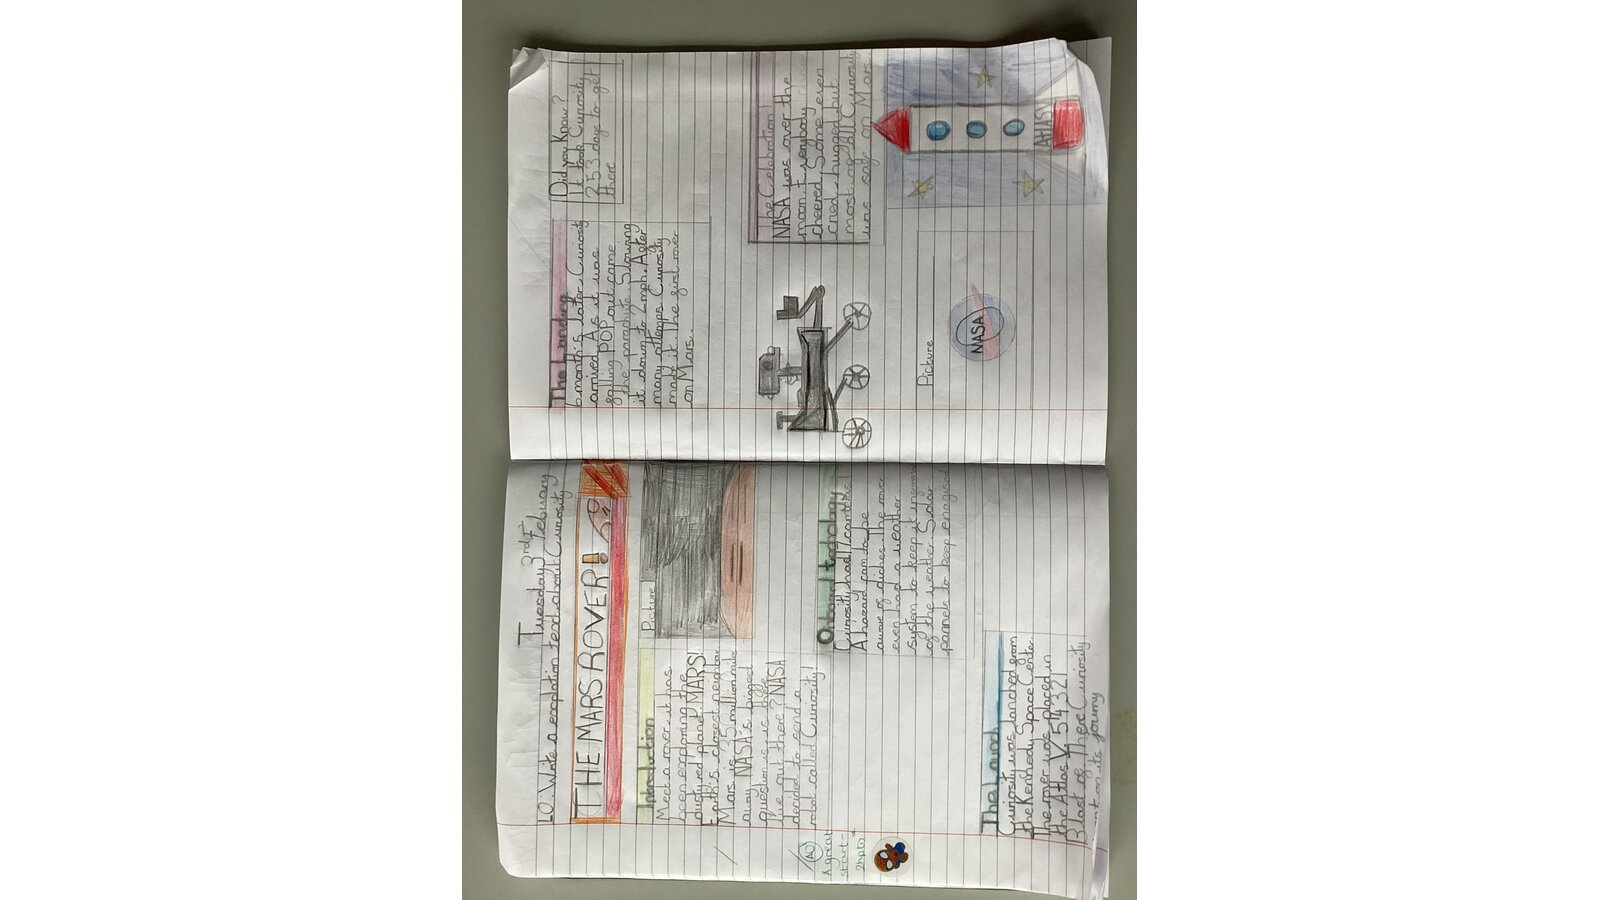 Tuesday 3rd February
LO: Write a explation text about Curiosity
THE MARS ROVER!
Introduction
Meet a rover it has
been exploring the
planet MARS!
Earth's closest neighbour
Mars is 35 million mils
away NASA's bigged
question is thge
live out there? NASA
decided to send a
robot called Curiosity!
Picture
Onboard technology
Curiosity had 17 cameras
A hazard cam to be
aware of diches. The rover
even had a weather
system to keep it
of the weather. Solar
pannels to keep
A great
start -
2hpts
The Launch
Curiosity was lanched from
the Kennedy Space Center.
The rover was placed in
the Atlas V 5 4 3 2 1
Blast of there Curiosity
on its journy
The Landing
6 month's later, Curiosity
arrived. As it was
falling POP out came
the parachute. Slowing
it down to 2 mph. After
many attemps Curiosity
made it. The first rover
on Mars.
Did you Know?
It took Curiosity
253 days to get
there
The Celebration
NASA was over the
moon. Everybody
cheered. Some even
cried, hugged but
most of all Curiosity
was safe on Mars
Picture
NASA
ATLAS V